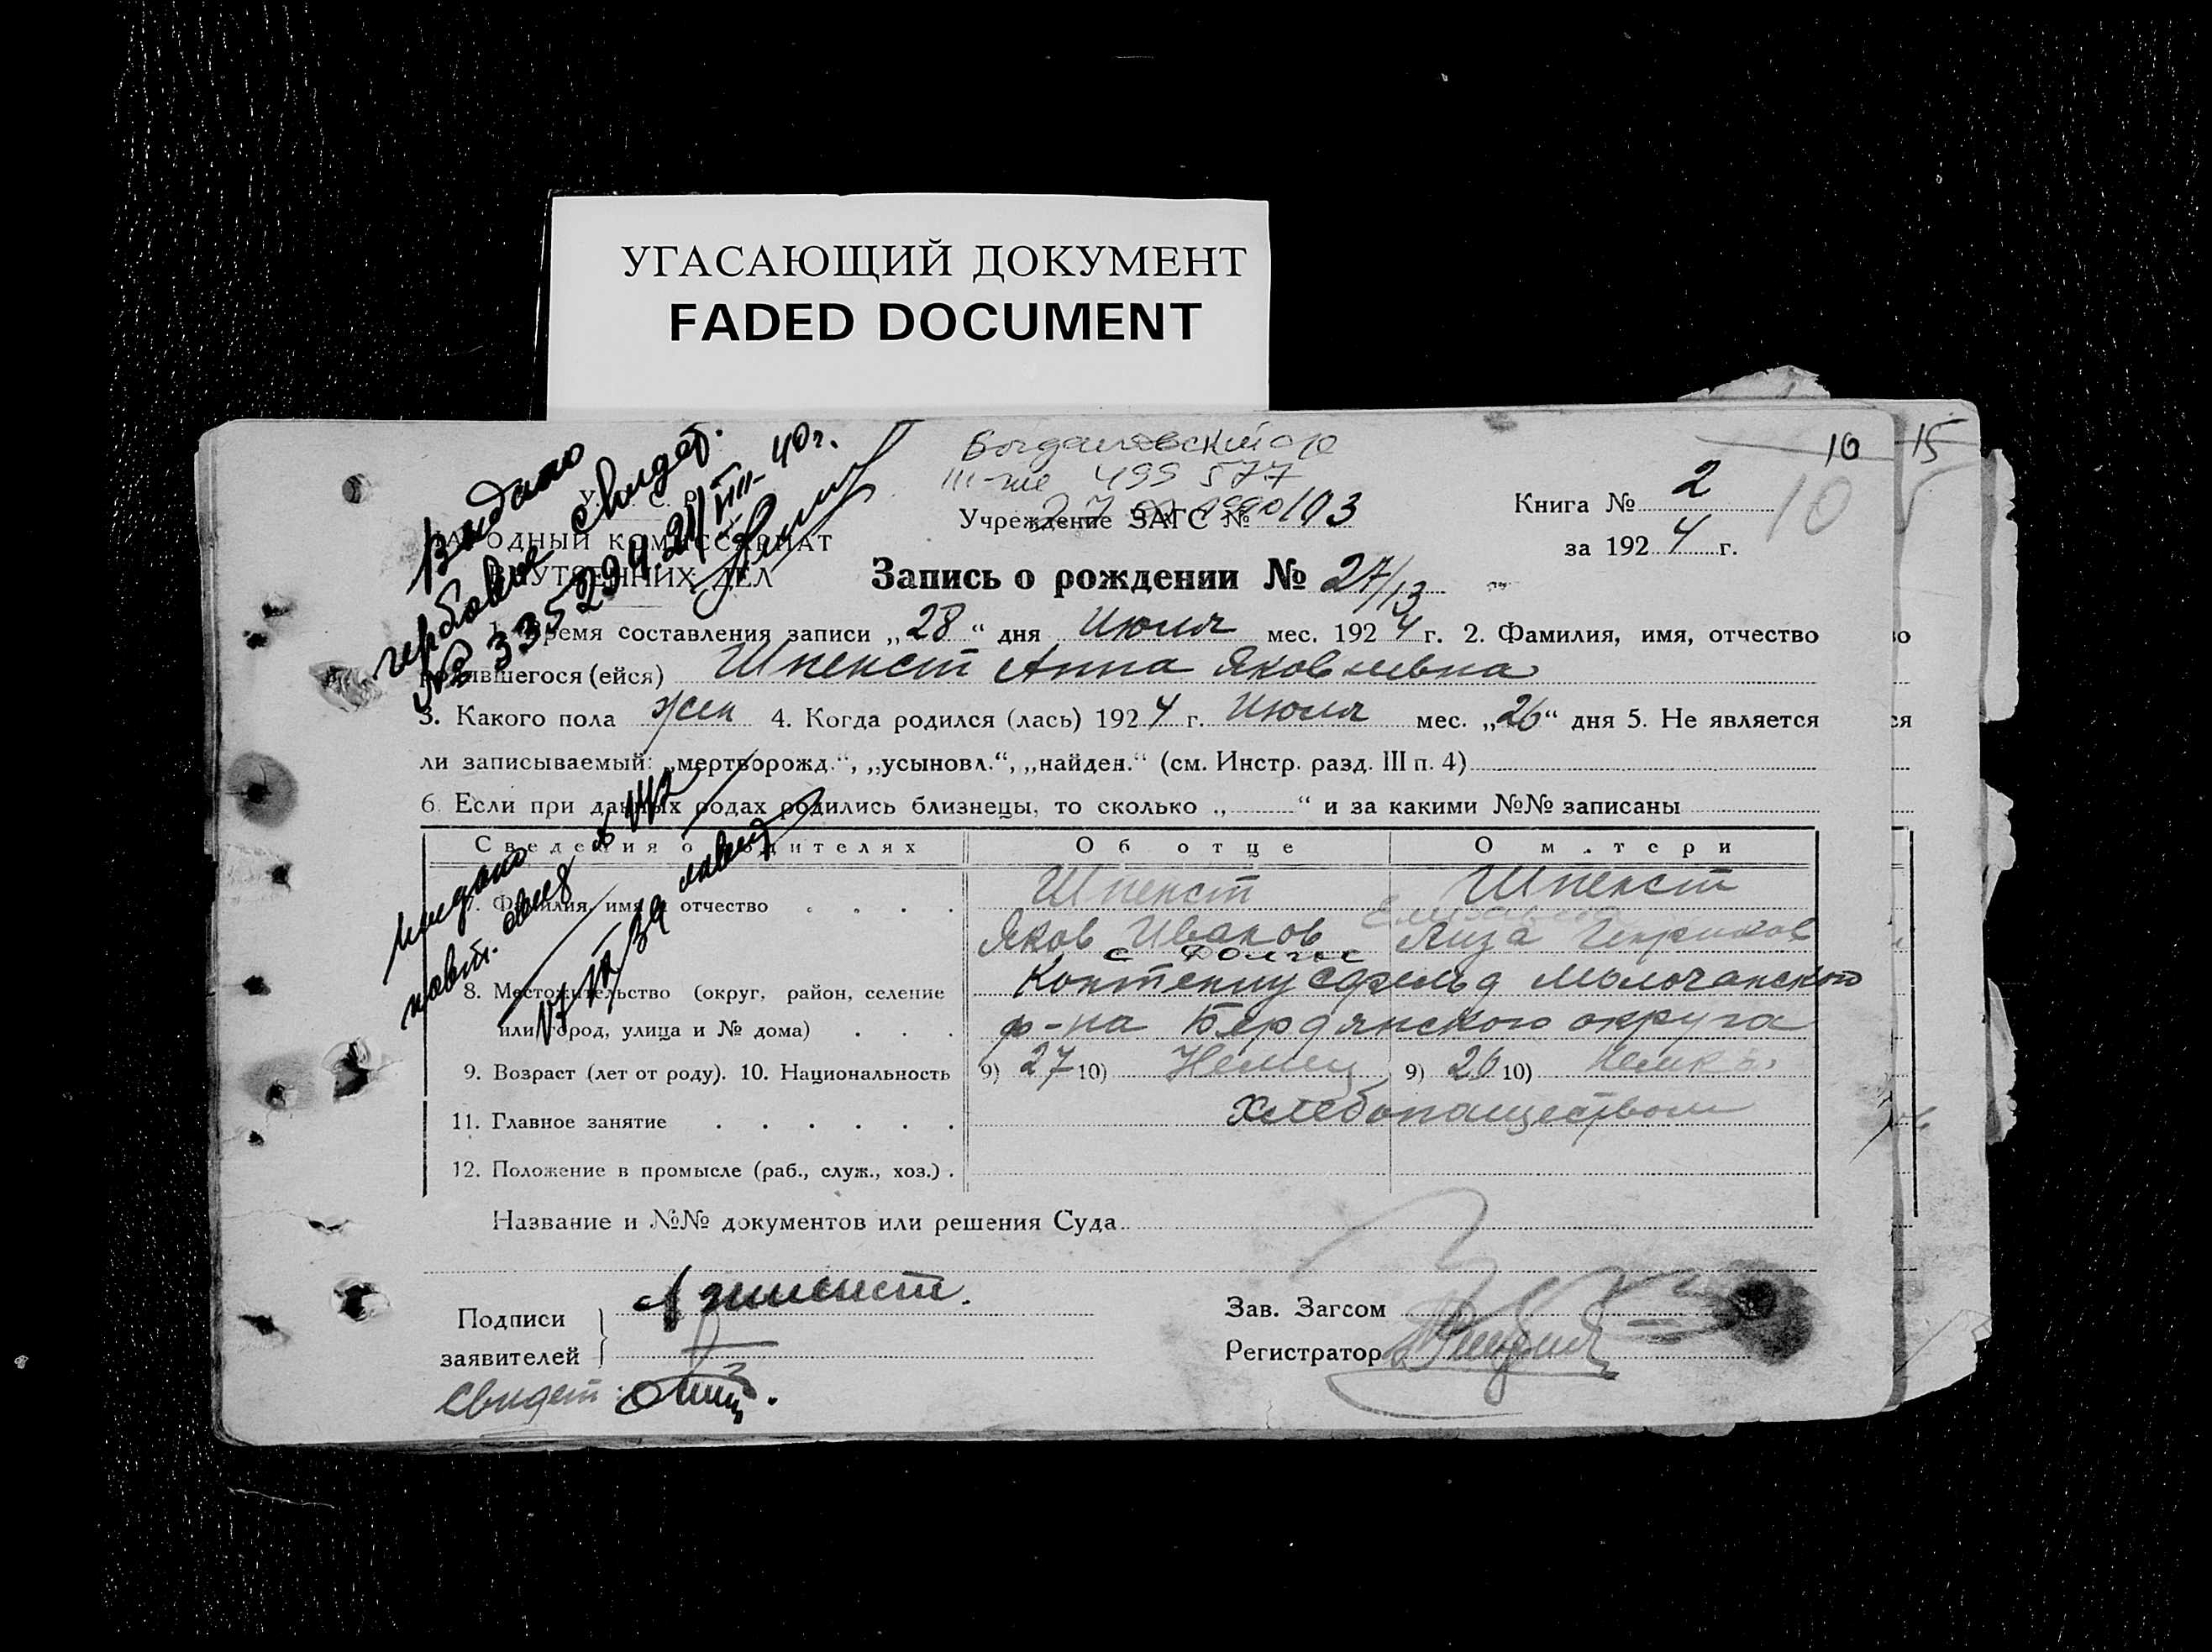 УГАСАЮЩИЙ ДОКУМЕНТ
FADED DOCUMENT
10 15
10
Выдано
гербовое свидет.
№ 335294 21/VIII-40г.
У. С.
НАРОДНЫЙ КОМИССАРИАТ
ВНУТРЕННИХ ДЕЛ
Богдановский с/с
III-же 499 577
Учреждение ЗАГС № 103
Книга № 2
за 1924 г.
Запись о рождении № 27/13
1. Время составления записи „28“ дня Июля мес. 1924 г. 2. Фамилия, имя, отчество
родившегося (ейся) Шпенст Анна Яковлевна
3. Какого пола жен 4. Когда родился (лась) 1924 г. Июля мес. „26“ дня 5. Не является
ли записываемый: „мертворожд.“, „усыновл.“, „найден.“ (см. Инстр. разд. III п. 4)
6. Если при данных родах родились близнецы, то сколько „ “ и за какими №№ записаны
Сведения о родителях Об отце О матери
7. Фамилия, имя и отчество Шпенст Шпенст
Елизавета
Яков Иванов Лиза Генрихов
выдано
повт. свид
8. Местожительство (округ, район, селение Молочанского
или город, улица и № дома) р-на Бердянского округа
9. Возраст (лет от роду). 10. Национальность 9) 27 10) Немец 9) 26 10) Немка
11. Главное занятие Хлебопашеством
12. Положение в промысле (раб., служ., хоз.)
Название и №№ документов или решения Суда
Подписи
заявителей
Зав. Загсом
Регистратор
Свидет.